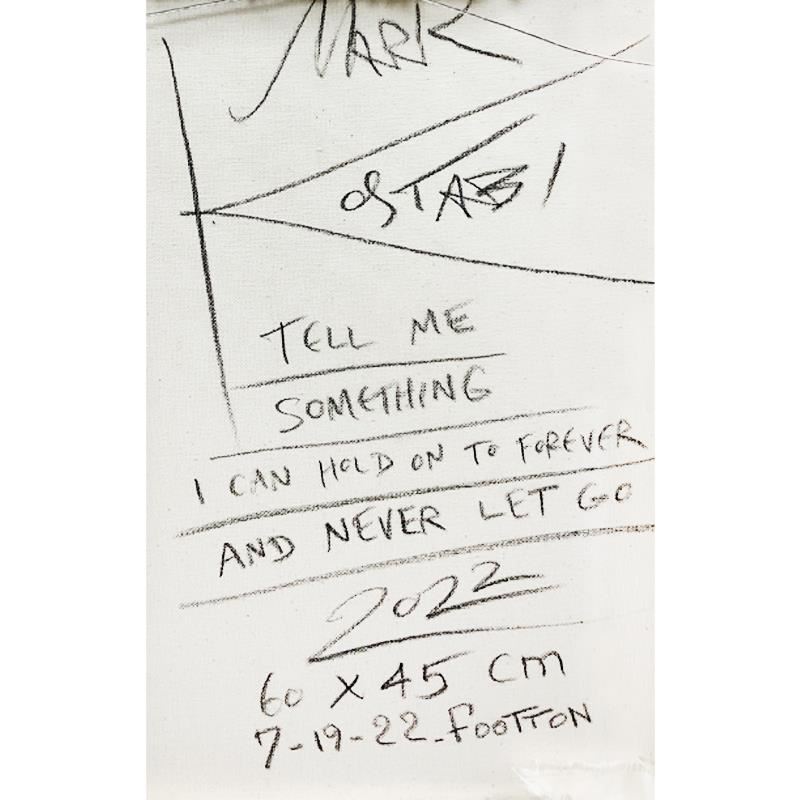 MARK
KOSTABI
TELL ME
SOMETHING
I CAN HOLD ON TO FOREVER
AND NEVER LET GO
2022
60 X 45 CM
7-19-22-FOOTTON